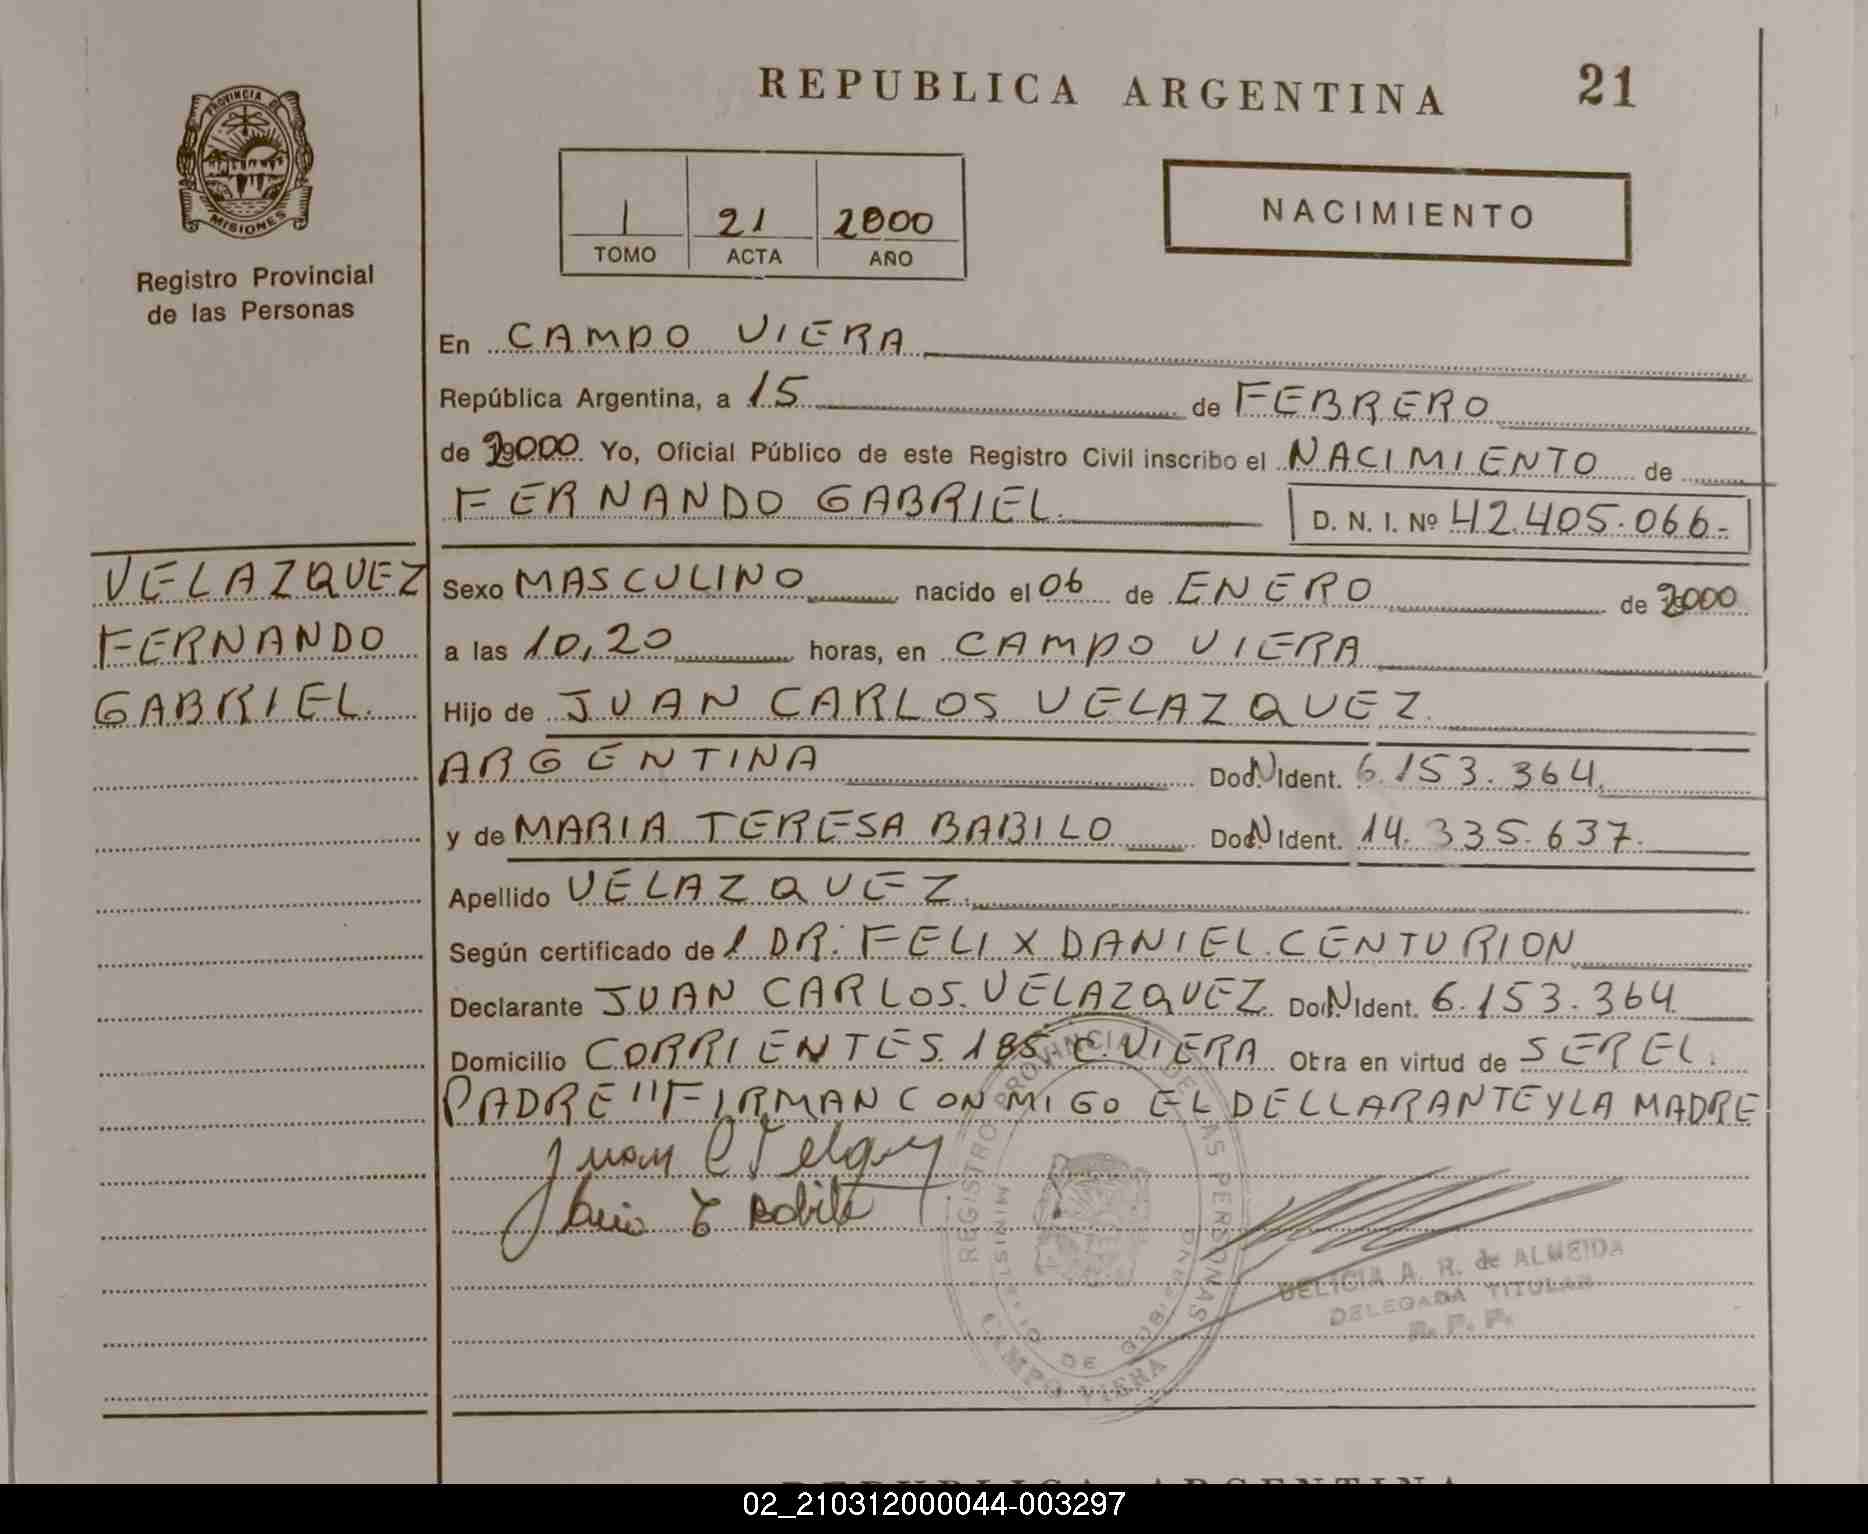 REPUBLICA ARGENTINA 21
PROVINCIA DE
MISIONES
Registro Provincial
de las Personas
1 21 2000
TOMO ACTA AÑO
NACIMIENTO
En CAMPO VIERA
República Argentina, a 15 de FEBRERO
de 2000 Yo, Oficial Público de este Registro Civil inscribo el NACIMIENTO de
FERNANDO GABRIEL. D. N. I. Nº 42.405.066.-
VELAZQUEZ
FERNANDO
GABRIEL.
Sexo MASCULINO nacido el 06 de ENERO de 2000
a las 10,20 horas, en CAMPO VIERA
Hijo de JUAN CARLOS VELAZQUEZ.
ARGENTINA Doc. N Ident. 6.153.364.
y de MARIA TERESA BABILO Doc. N Ident. 14.335.637.
Apellido VELAZQUEZ.
Según certificado de l DR. FELIX DANIEL CENTURION
Declarante JUAN CARLOS VELAZQUEZ Doc. N Ident. 6.153.364
Domicilio CORRIENTES 185 C. VIERA Obra en virtud de SER EL
PADRE "FIRMAN CONMIGO EL DELLARANTE Y LA MADRE
REGISTRO PROVINCIAL DE LAS PERSONAS
MINISTERIO DE GOBIERNO
CAMPO VIERA
DELICIA A. R. de ALMEIDA
DELEGADA TITULAR
R. P. P.
REPUBLICA ARGENTINA
02_210312000044-003297